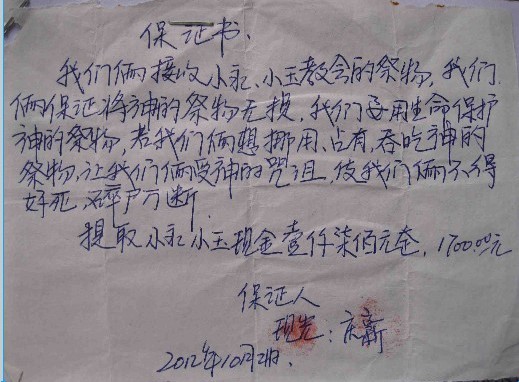 保证书.
我们俩接收小永、小玉教会的祭物, 我们
俩保证将神的祭物无损, 我们要用生命保护
神的祭物, 若我们俩想挪用、占有、吞吃神的
祭物, 让我们俩受神的咒诅, 使我们俩不得
好死 碎尸万断.
提取小永 小玉现金壹仟柒佰元, 1700.00元
保证人
2012年10月2日.